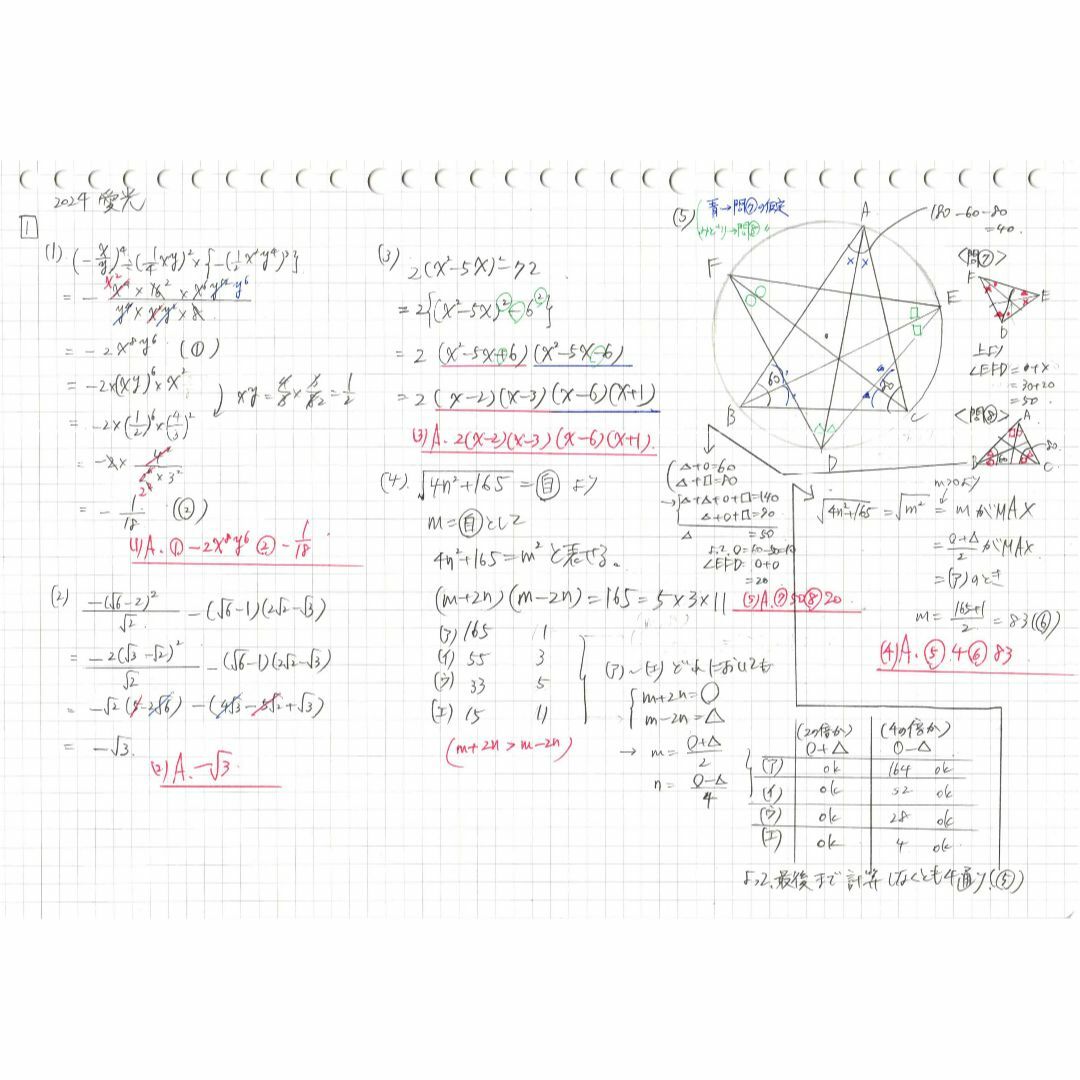 2024 愛光
1
(1) (-x/y)^4÷(1/4 xy)^2×{-(1/2 x^2y^4)^3}
= -2x^8y^6 (①)
= -2×(xy)^6×x^2
xy = 4/3 × 3/8 = 1/2
= -2×(1/2)^6×(4/3)^2
= -1/18 (②)
(1) A. ① -2x^8y^6 ② -1/18
(2) -(√6-2)^2/√2 -(√6-1)(2√2-√3)
= -2(√3-√2)^2/√2 -(√6-1)(2√2-√3)
= -√2(5-2√6) -(4√3-5√2+√3)
= -√3.
(2) A. -√3.
(3)
2(x^2-5x)^2-72
= 2{(x^2-5x)^2-6^2}
= 2(x^2-5x+6)(x^2-5x-6)
= 2(x-2)(x-3)(x-6)(x+1)
(3) A. 2(x-2)(x-3)(x-6)(x+1).
(4). √4n^2+165 = 自 より
m=自として
4n^2+165=m^2と表せる。
(m+2n)(m-2n)=165=5×3×11
(ア) 165 1
(イ) 55 3
(ウ) 33 5
(エ) 15 11
(m+2n>m-2n)
(ア)〜(エ)どれにおいても
m+2n=○
m-2n=△
→ m=○+△/2
n=○-△/4
(2の倍か) ○+△ (4の倍か) ○-△
(ア) ok 164 ok
(イ) ok 52 ok
(ウ) ok 28 ok
(エ) ok 4 ok
よって、最後まで計算しなくとも4通り(⑤)
m>0より
√4n^2+165=√m^2=mがMAX
=○+△/2がMAX
=(ア)のとき
m=165+1/2=83(⑥)
(4) A. ⑤ 4 ⑥ 83
(5)
青→問⑦の仮定
A
180-60-80
=40.
F
E
B
C
D
60
80
<問⑦>
F
E
D
上より
∠EFD=○+×
=30+20
=50
<問⑧>
A
B
C
60
80
△+○=60
△+□=80
→△+△+○+□=140
△+○+□=90
△=50
よって、○=60-50=10
∠EFD=○+○
=20
(5) A. ⑦ 50 ⑧ 20